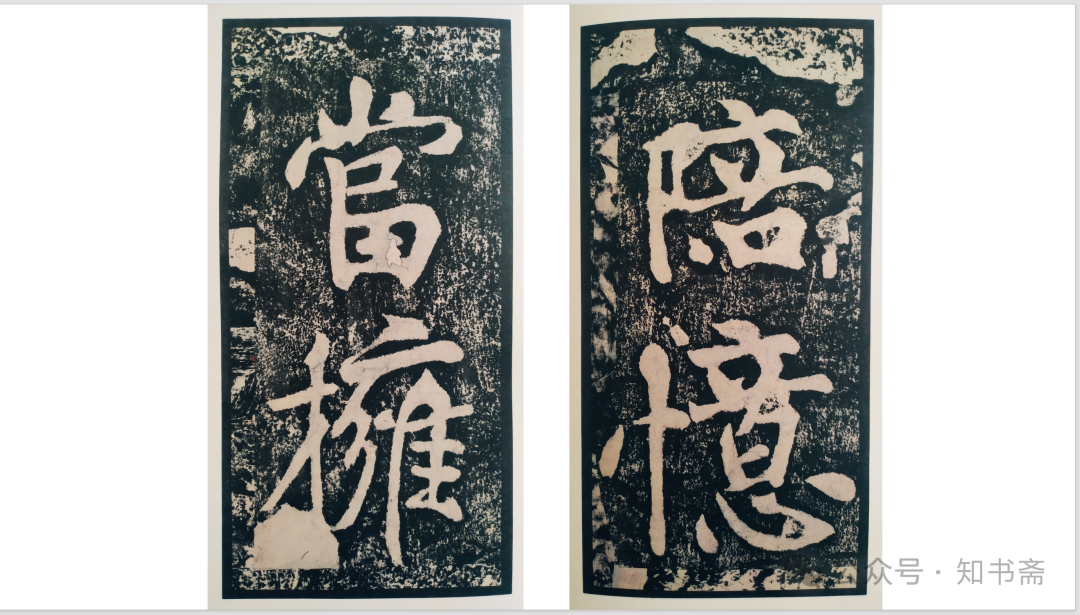 陪憶
當擁
众号 · 知书斋